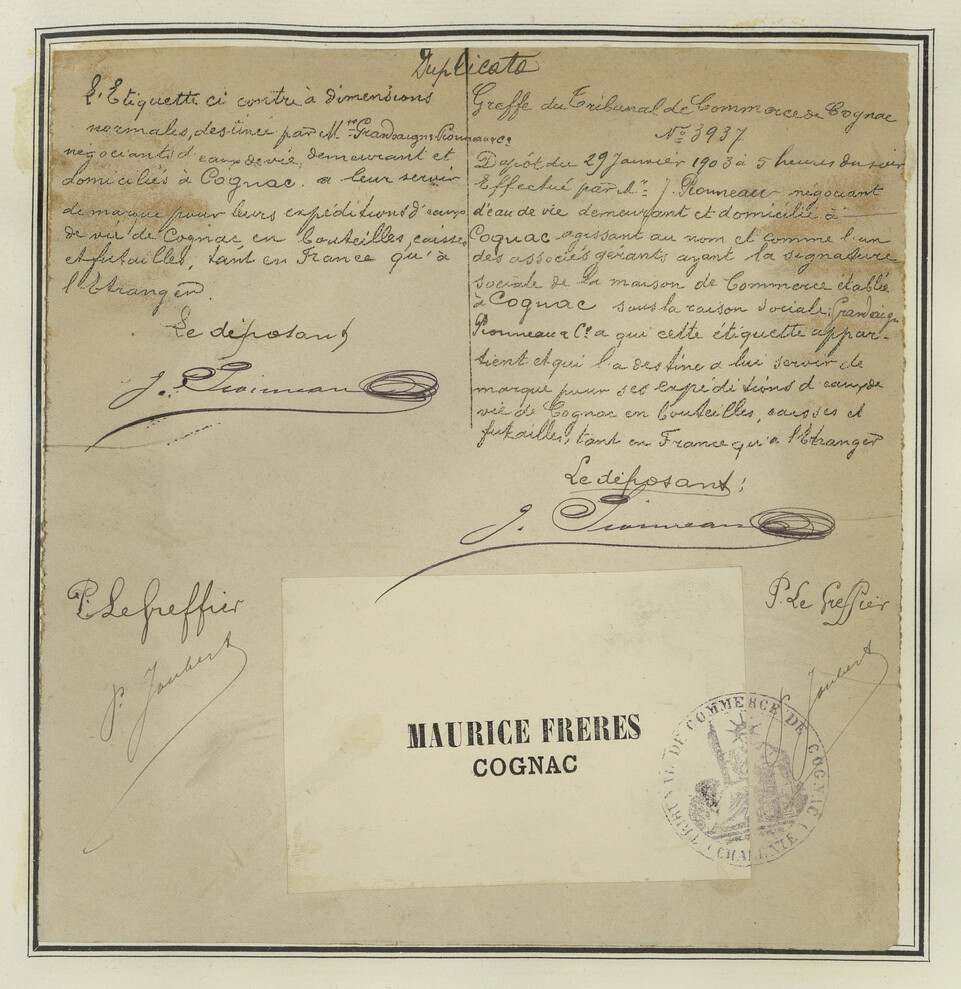 Duplicata
L'Etiquette ci contre à dimensions
normales, destinée par M.rs Grandaigne Pionneau & Co
négociants d'eaux de vie, demeurant et
domiciliés à Cognac. a leur servir
de marque pour leurs expéditions d'eaux
de vie de Cognac en bouteilles, caisses
et futailles, tant en France qu'à
l'Etranger.
Le déposant
J. Pionneau
Greffe du Tribunal de Commerce de Cognac
No 3937
Dépôt du 29 Janvier 1903 à 5 heures du soir
Effectué par Mr. J. Pionneau négociant
d'eau de vie demeurant et domicilié à
Cognac agissant au nom et comme l'un
des associés gérants ayant la signature
sociale de la maison de Commerce établie
à Cognac sous la raison sociale: Grandaigne
Pionneau & Co a qui cette étiquette appar-
tient et qui l'a destine a lui servir de
marque pour ses expéditions d'eaux de
vie de Cognac en bouteilles, caisses et
futailles, tant en France qu'a l'Etranger
Le déposant;
J. Pionneau
P. Le Greffier
P. Joubert
P. Le Greffier
P. Joubert
MAURICE FRERES
COGNAC
TRIBUNAL DE COMMERCE DE COGNAC
(CHARENTE)